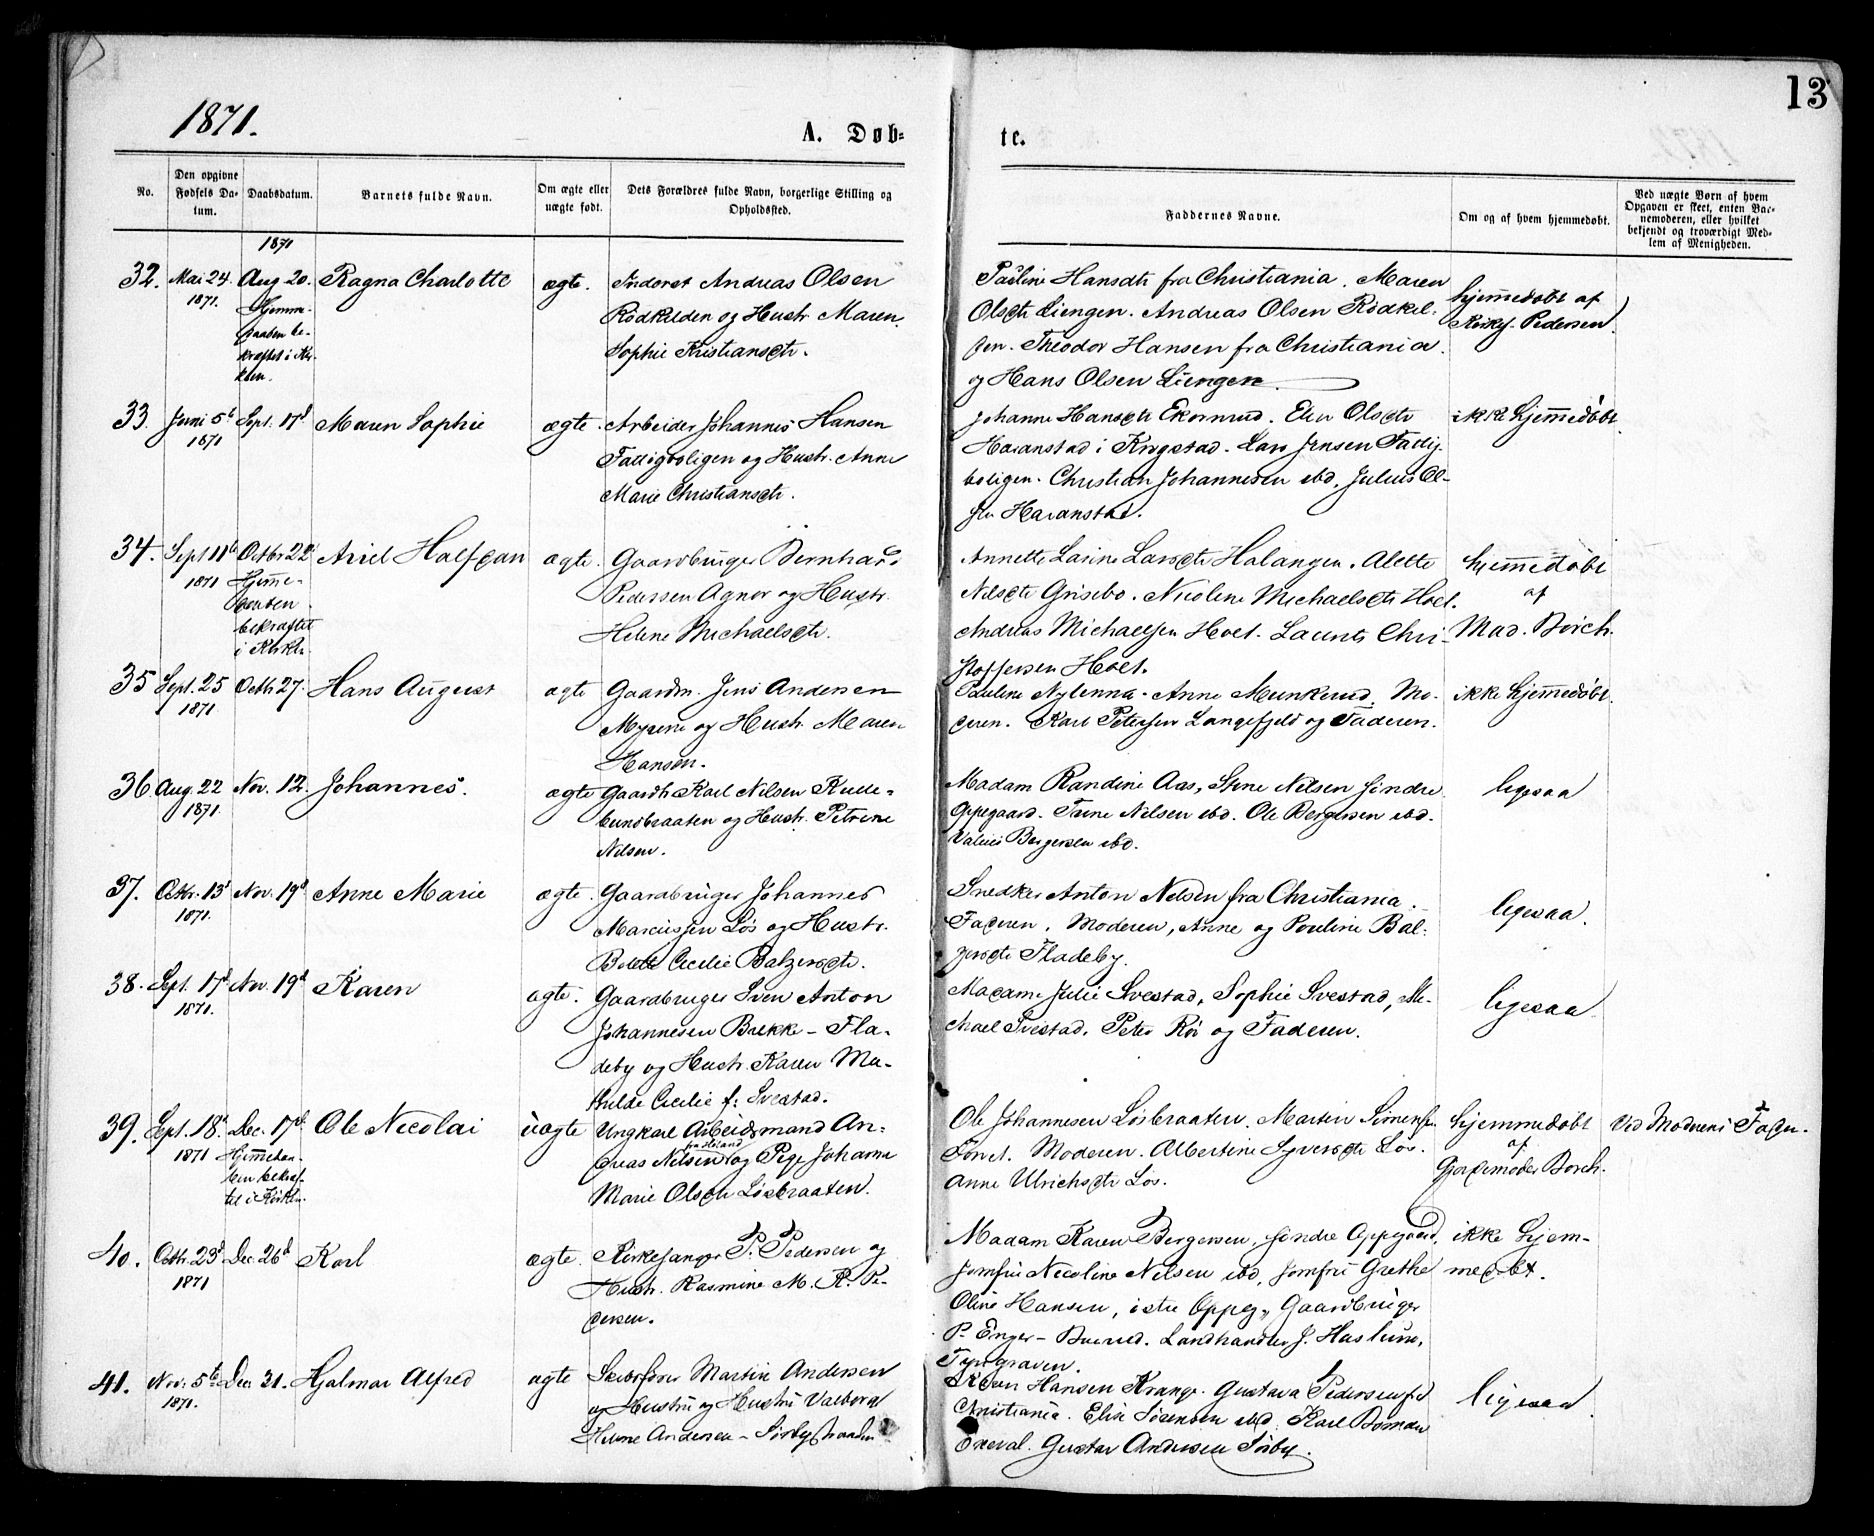 13
1871.
A. Døb-
te.
No.
Den opgivne Fødsels Da-
tum.
Daabsdatum.
Barnets fulde Navn.
Om ægte eller uægte født.
Dets Forældres fulde Navn, borgerlige Stilling og Opholdssted.
Faddernes Navne.
Om og af hvem hjemmedøbt.
Ved uægte Børn af hvem Opgaven er skeet, enten Bar-
nemoderen, eller hvilket bekjendt og troværdigt Med-
lem af Menigheden.
1871
32. Mai 24. Aug 20. Ragna Charlotte ægte. Inderst Andreas Olsen
1871. Hjemme-
daaben be-
kræftet i Kir-
ken.
Rødkilden og Hustr. Maren
Sophie Kristiansdtr.
Pauline Hansdtr fra Christiania. Maren
Olsdtr Liengen. Andreas Olsen Rødkil-
den. Theodor Hansen fra Christiania
og Hans Olsen Liengen.
hjemmedøbt af
Kirkes. Pedersen.
33. Juni 5te Sept. 17d Maren Sophie ægte. Arbeider Johannes Hansen
1871
Fattigboligen og Hustr. Anne
Marie Christiansdtr.
Johanne Hansdtr Ekornrud. Elen Olsdtr
Haranstad i Krogstad. Lars Jensen Fattig-
boligen. Christian Johannesen ibd. Julius Ol-
sen Haranstad.
ikke hjemmedøbt.
34. Sept 11te Octbr 22d Ariel Halfdan ægte. Gaardbruger Bernhard
1871 Hjemme-
daaben
bekræftet
i Kirken
Pedersen Agnor og Hustr.
Helene Michaelsdtr.
Annette Larine Larsdtr Halangen. Alette
Nilsdtr Grisebo. Nicoline Michaelsdtr Hoel.
Andreas Michaelsen Hoel. Laurits Chri-
stoffersen Hoel.
hjemmedøbt
af
Mad. Borch.
35 Sept. 25 Octbr 27. Hans August ægte Gaardm. Jens Andersen
1871.
Myrene og Hustr. Maren
Hansen.
Pauline Nylenna. Anne Munkerud. Mo-
deren. Karl Petersen Langefjeld og Faderen.
ikke hjemmedøbt.
36. Aug. 22 Nov. 12. Johannes. ægte Gaardbr. Karl Nilsen Kulle-
1871.
bundbraaten og Hustr. Petrine
Nilsen.
Madam Randine Aas, Stine Nilsen søndre
Oppegaard. Trine Nilsen ibd. Ole Bergersen ibd.
Valius Bergersen ibd.
ligesaa
37. Octbr. 13d Nov. 19d Anne Marie ægte. Gaardbruger Johannes
1871.
Marcussen Løs og Hustr.
Bolette Cecilie Balzersdtr.
Snedker Anton Nelsen fra Christiania.
Faderen, Moderen, Anne og Pouline Bal-
zersdtr Fladeby.
ligesaa.
38. Sept. 17d Nov. 19d Karen ægte. Gaardbruger Sven Anton
1871.
Johannesen Bækk- Fla-
deby og Hustr. Karen Ma-
thilde Cecilie f: Svestad.
Madame Julie Svestad, Sophie Svestad, Mi-
chael Svestad. Peter Rør og Faderen.
ligesaa
39. Sept. 18d Dec. 17d Ole Nicolai uægte Ungkarl Arbeidsmand An-
1871 Hjemmedaa-
ben bekræf-
tet i Kirken.
dreas Nilsen fra Høland og Pige Johanne
Marie Olsdtr Løsbraaten.
Ole Johannesen Løsbraaten. Martin Simensen
Tomt. Moderen. Albertine Syversdtr Løs.
Anne Ulrichsdtr Løs.
hjemmedøbt
af
Gjordemoder Borch.
Ved Moderens Fader.
40. Octbr. 23d Dec. 26d Karl ægte. Kirkesanger P. Pedersen og
1871
Hustr. Rasmine M. K. Pe-
dersen.
Madam Karen Bergersen, søndre Oppegaard.
Jomfru Nicoline Nilsen ibd, Jomfru Grethe
Oline Hansen, Gaardbruger
P. Enger- Buerud. Landhandler J. Haslum,
Tyrigraven.
ikke hjem-
medøbt.
41. Nov: 5te Dec. 31. Hjalmar Alfred ægte Skibsfører Martin Andersen
1871.
og Hustru og Hustru Valborg
Helene Andersen- Sørbystranden
Hansen Krange. Gustava Pedersen fra
Christiania. Elise Sørensen ibd. Karl Boman
Oxeval. Gustav Andersen Sørby.
ligesaa